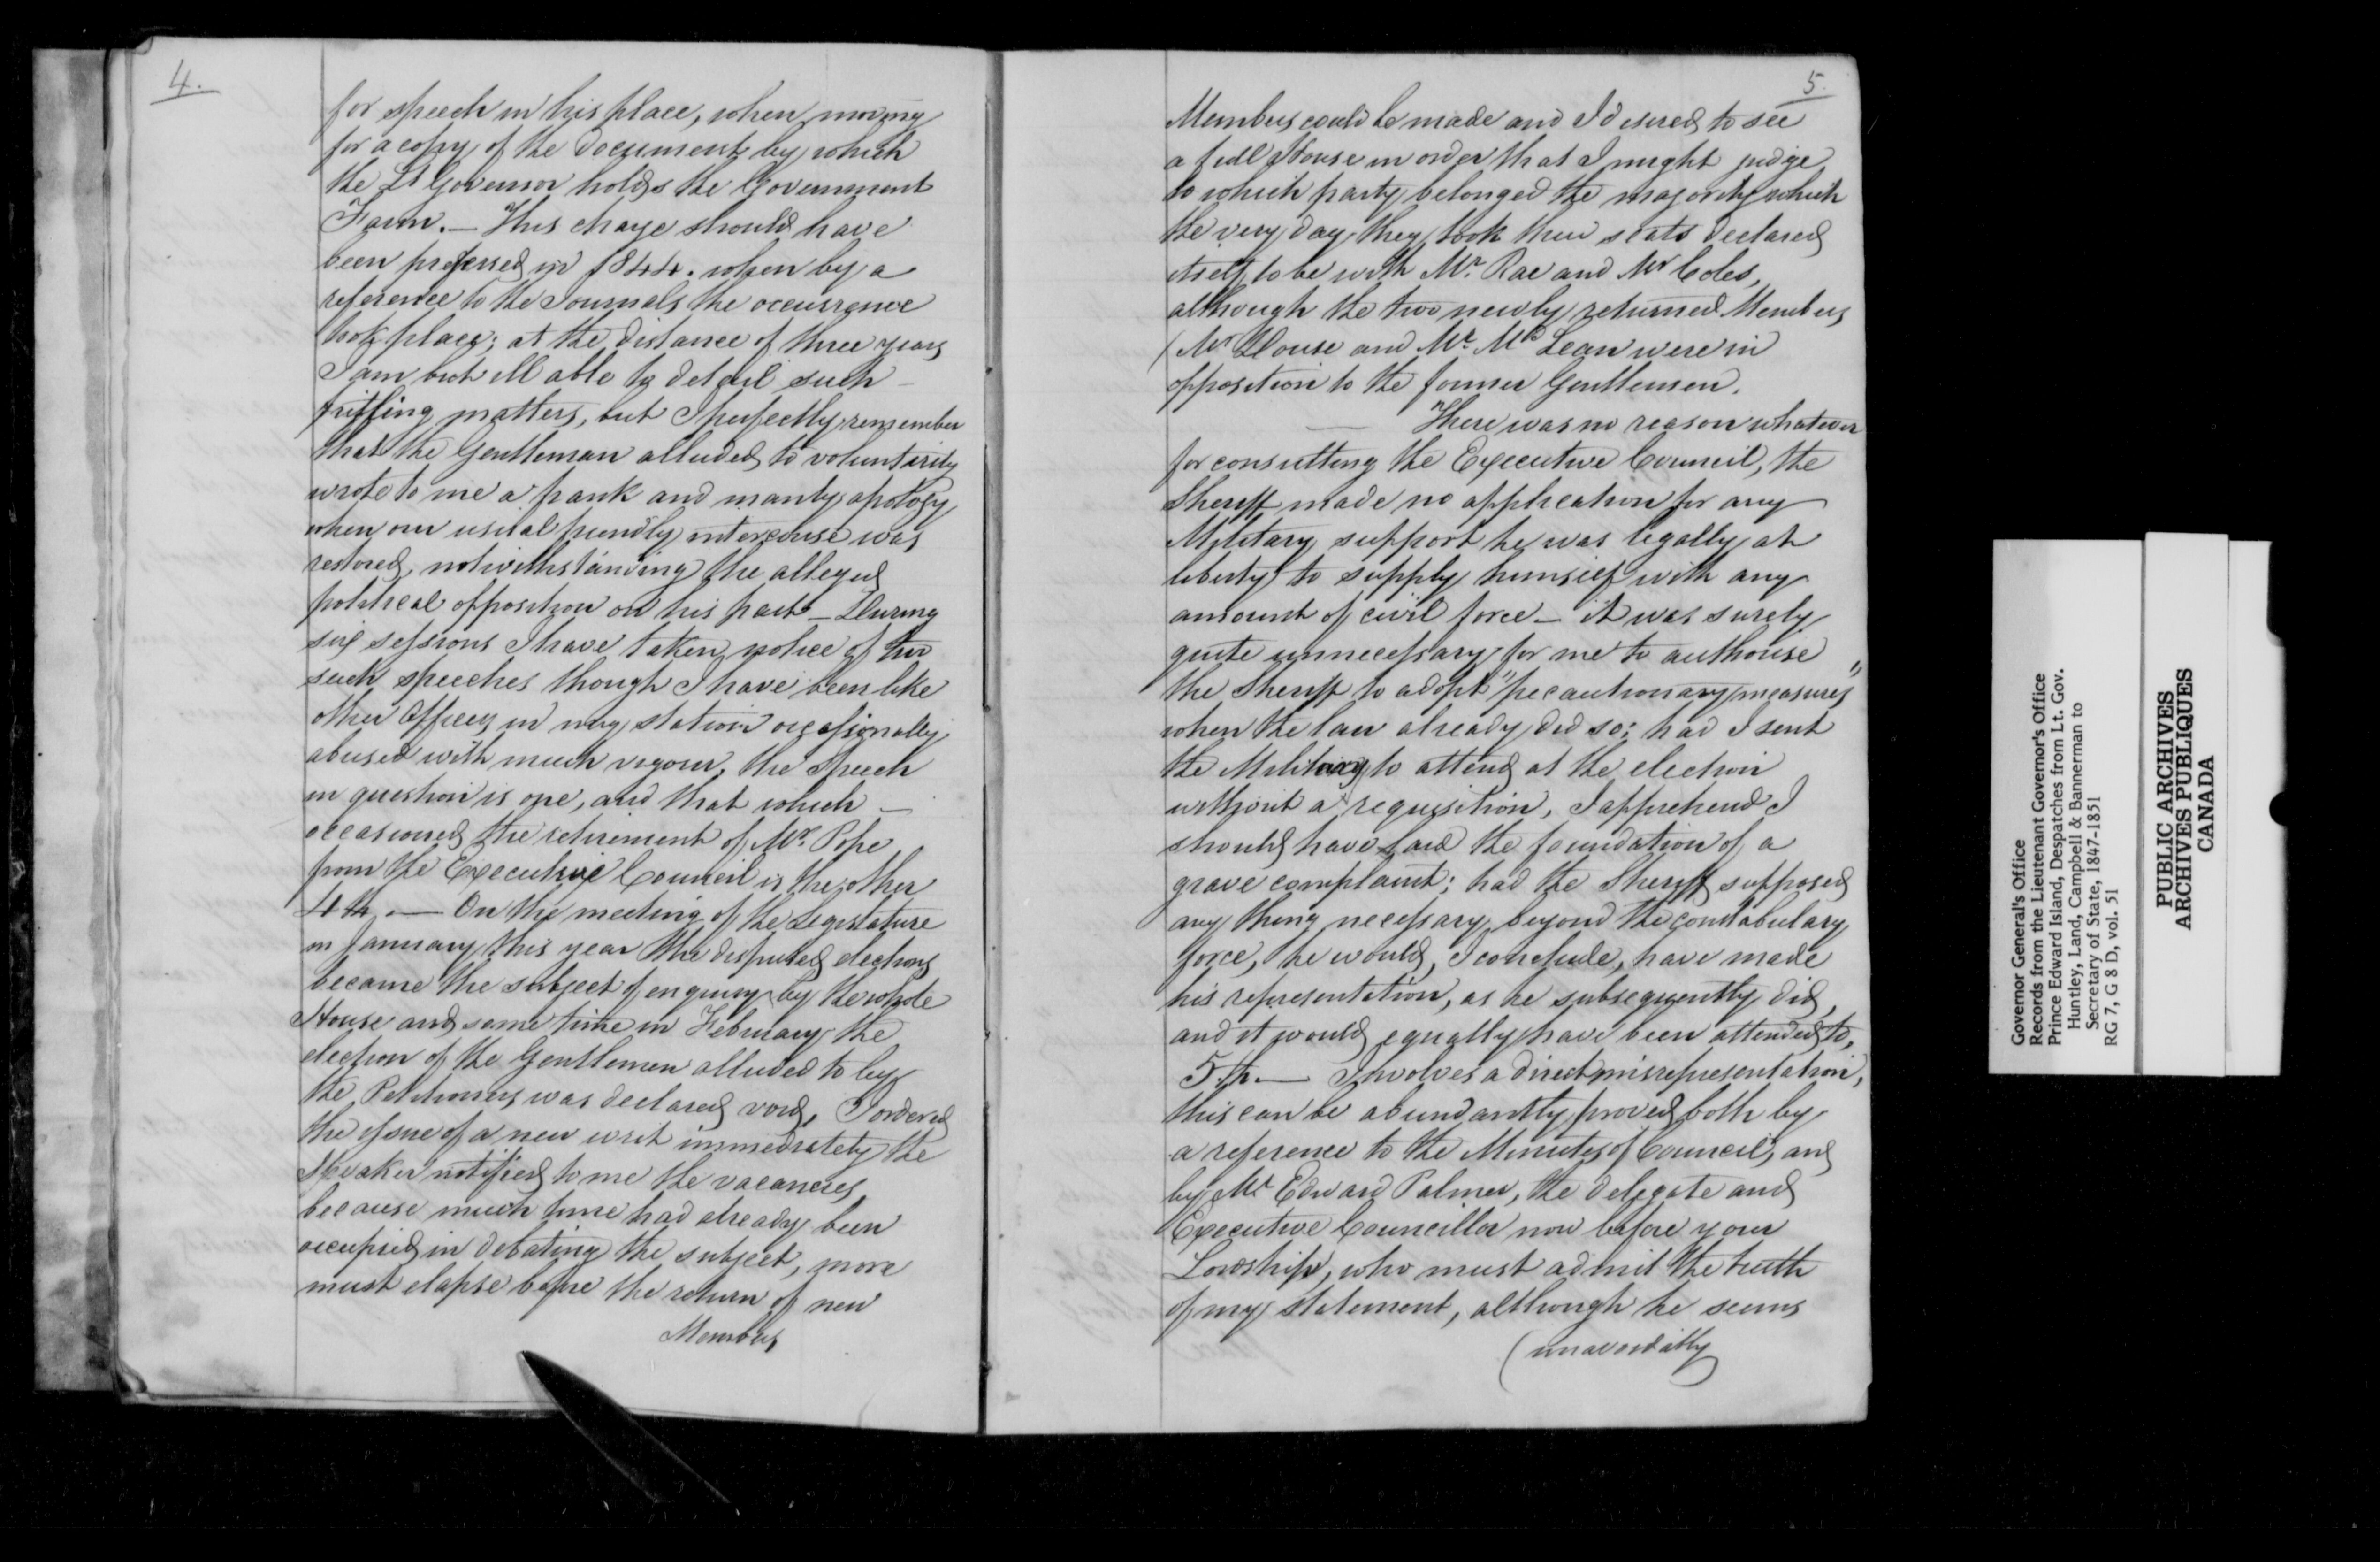 4.
for speech in his place, when moving
for a copy of the Document by which
the Lt Governor holds the Government
Farm. — This charge should have
been preferred in 1844. when by a
reference to the Journals the occurrence
took place; at the distance of three years
I am but ill able to detail such —
trifling matters, but I perfectly remember
that the Gentleman alluded to voluntarily
wrote to me a frank and manly apology
when our usual friendly intercourse was
restored, notwithstanding the alleged
political opposition on his part — During
six sessions I have taken notice of two
such speeches though I have been like
other Officers in my station occasionally
abused with much vigour, the speech
in question is one, and that which —
occasioned the retirement of Mr. Pope
from the Executive Council is the other
4th. — On the meeting of the Legislature
in January this year the disputed elections
became the subject of enquiry by the whole
House and some time in February the
election of the Gentlemen alluded to by
the Petitioners was declared void, I ordered
the issue of a new writ immediately the
Speaker notified to me the vacancies
because much time had already been
occupied in debating the subject, more
must elapse before the return of new
Members
5.
Members could be made and I desired to see
a full House in order that I might judge
to which party belonged the majority which
the very day they took their seats declared
itself to be with Mr. Rae and Mr Coles,
although the two newly returned Members
(Mr Douse and Mr. McLean were in
opposition to the former Gentlemen.
— There was no reason whatever
for consulting the Executive Council, the
Sheriff made no application for any
Military support he was legally at
liberty to supply himself with any
amount of civil force — it was surely
quite unnecessary for me to authorise
the Sheriff to adopt "precautionary measures"
when the law already did so; had I sent
the Military to attend at the election
without a requisition, I apprehend I
should have laid the foundation of a
grave complaint; had the Sheriff supposed
any thing necessary beyond the constabulary
force, he would, I conclude, have made
his representation, as he subsequently did,
and it would equally have been attended to,
5th. — Involves a direct misrepresentation,
this can be abundantly proved both by
a reference to the Minutes of Council, and
by Mr Edward Palmer, the delegate and
Executive Councillor now before your
Lordship, who must admit the truth
of my statement, although he seems
(unavoidably
Governor General's Office
Records from the Lieutenant Governor's Office
Prince Edward Island, Despatches from Lt. Gov.
Huntley, Land, Campbell & Bannerman to
Secretary of State, 1847-1851
RG 7, G 8 D, vol. 51
PUBLIC ARCHIVES
ARCHIVES PUBLIQUES
CANADA